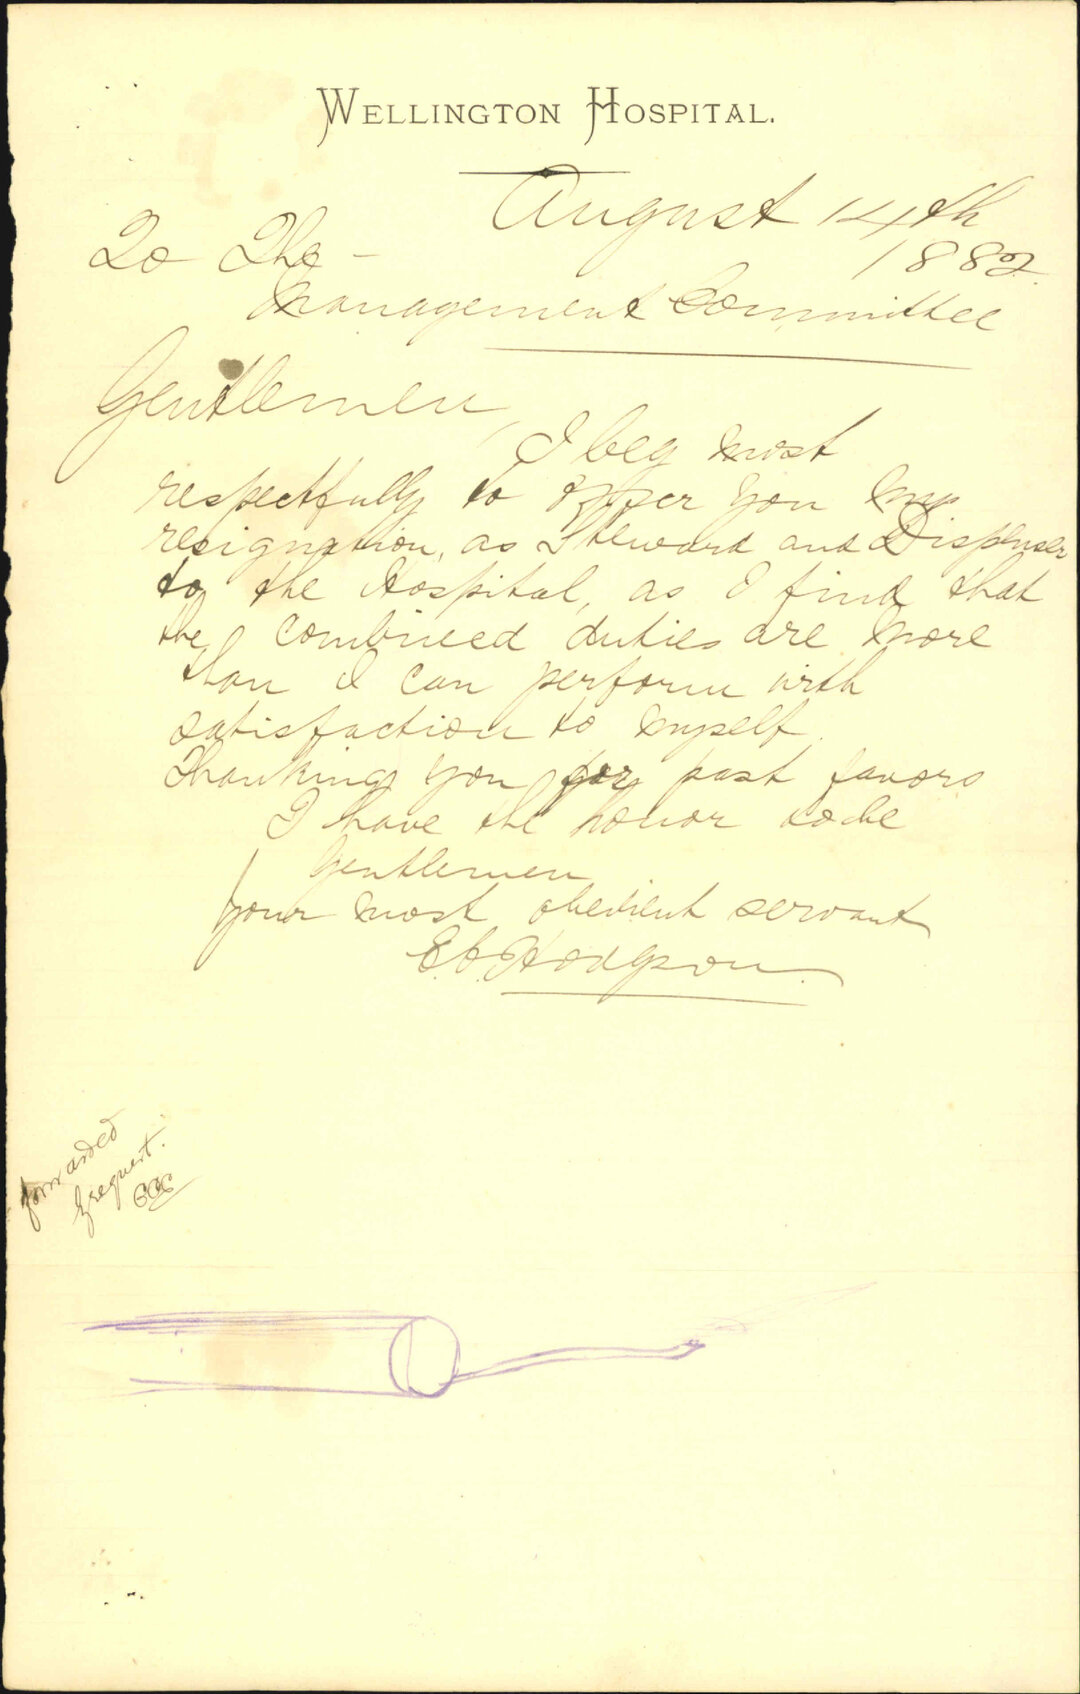 WELLINGTON HOSPITAL.
August 14th
1882
To The -
Management Committee
Gentlemen,
I beg most
respectfully to offer you my
resignation, as Steward and Dispenser
to the Hospital, as I find that
the combined duties are more
than I can perform with
satisfaction to myself.
Thanking you for past favors
I have the honor to be
Gentlemen
Your most obedient servant
E.C. Hodgson.
forwarded